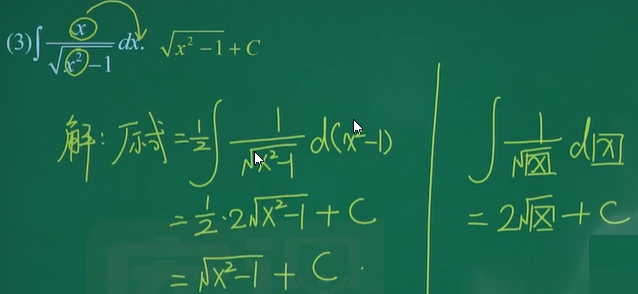 (3)∫ x/√(x²-1) dx. √(x²-1) + C
解：原式 = 1/2 ∫ 1/√(x²-1) d(x²-1)
= 1/2 · 2√(x²-1) + C
= √(x²-1) + C.
∫ 1/√x dx
= 2√x + C